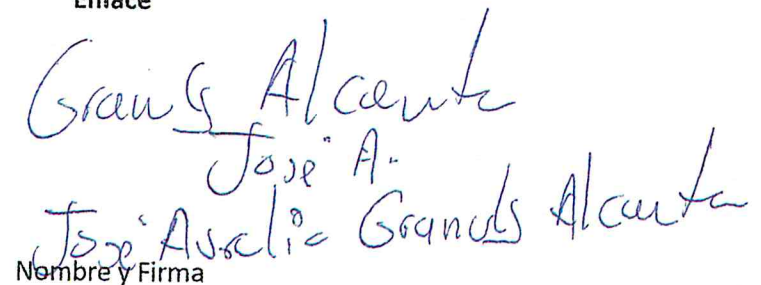 Enlace
Granados Alcanta
José A.
José Aurelio Granados Alcanta
Nombre y Firma